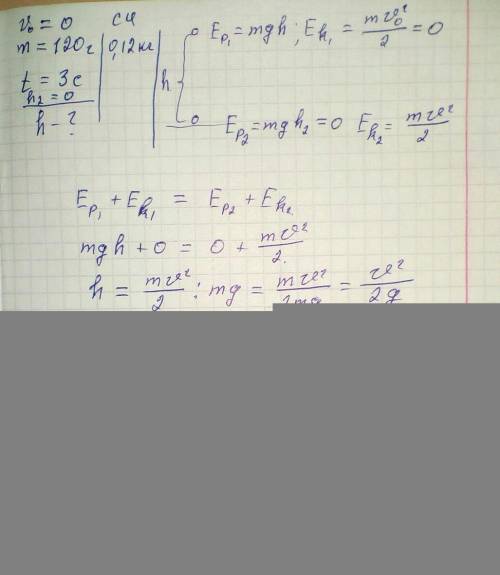 v₀ = 0 СИ
m = 120г 0,12кг
t = 3с
h₂ = 0
h - ?
h
E_p₁ = mgh ; E_k₁ = mv₀²/2 = 0
E_p₂ = mgh₂ = 0 E_k₂ = mv²/2
E_p₁ + E_k₁ = E_p₂ + E_k₂
mgh + 0 = 0 + mv²/2
h = mv²/2 : mg = mv²/2mg = v²/2g